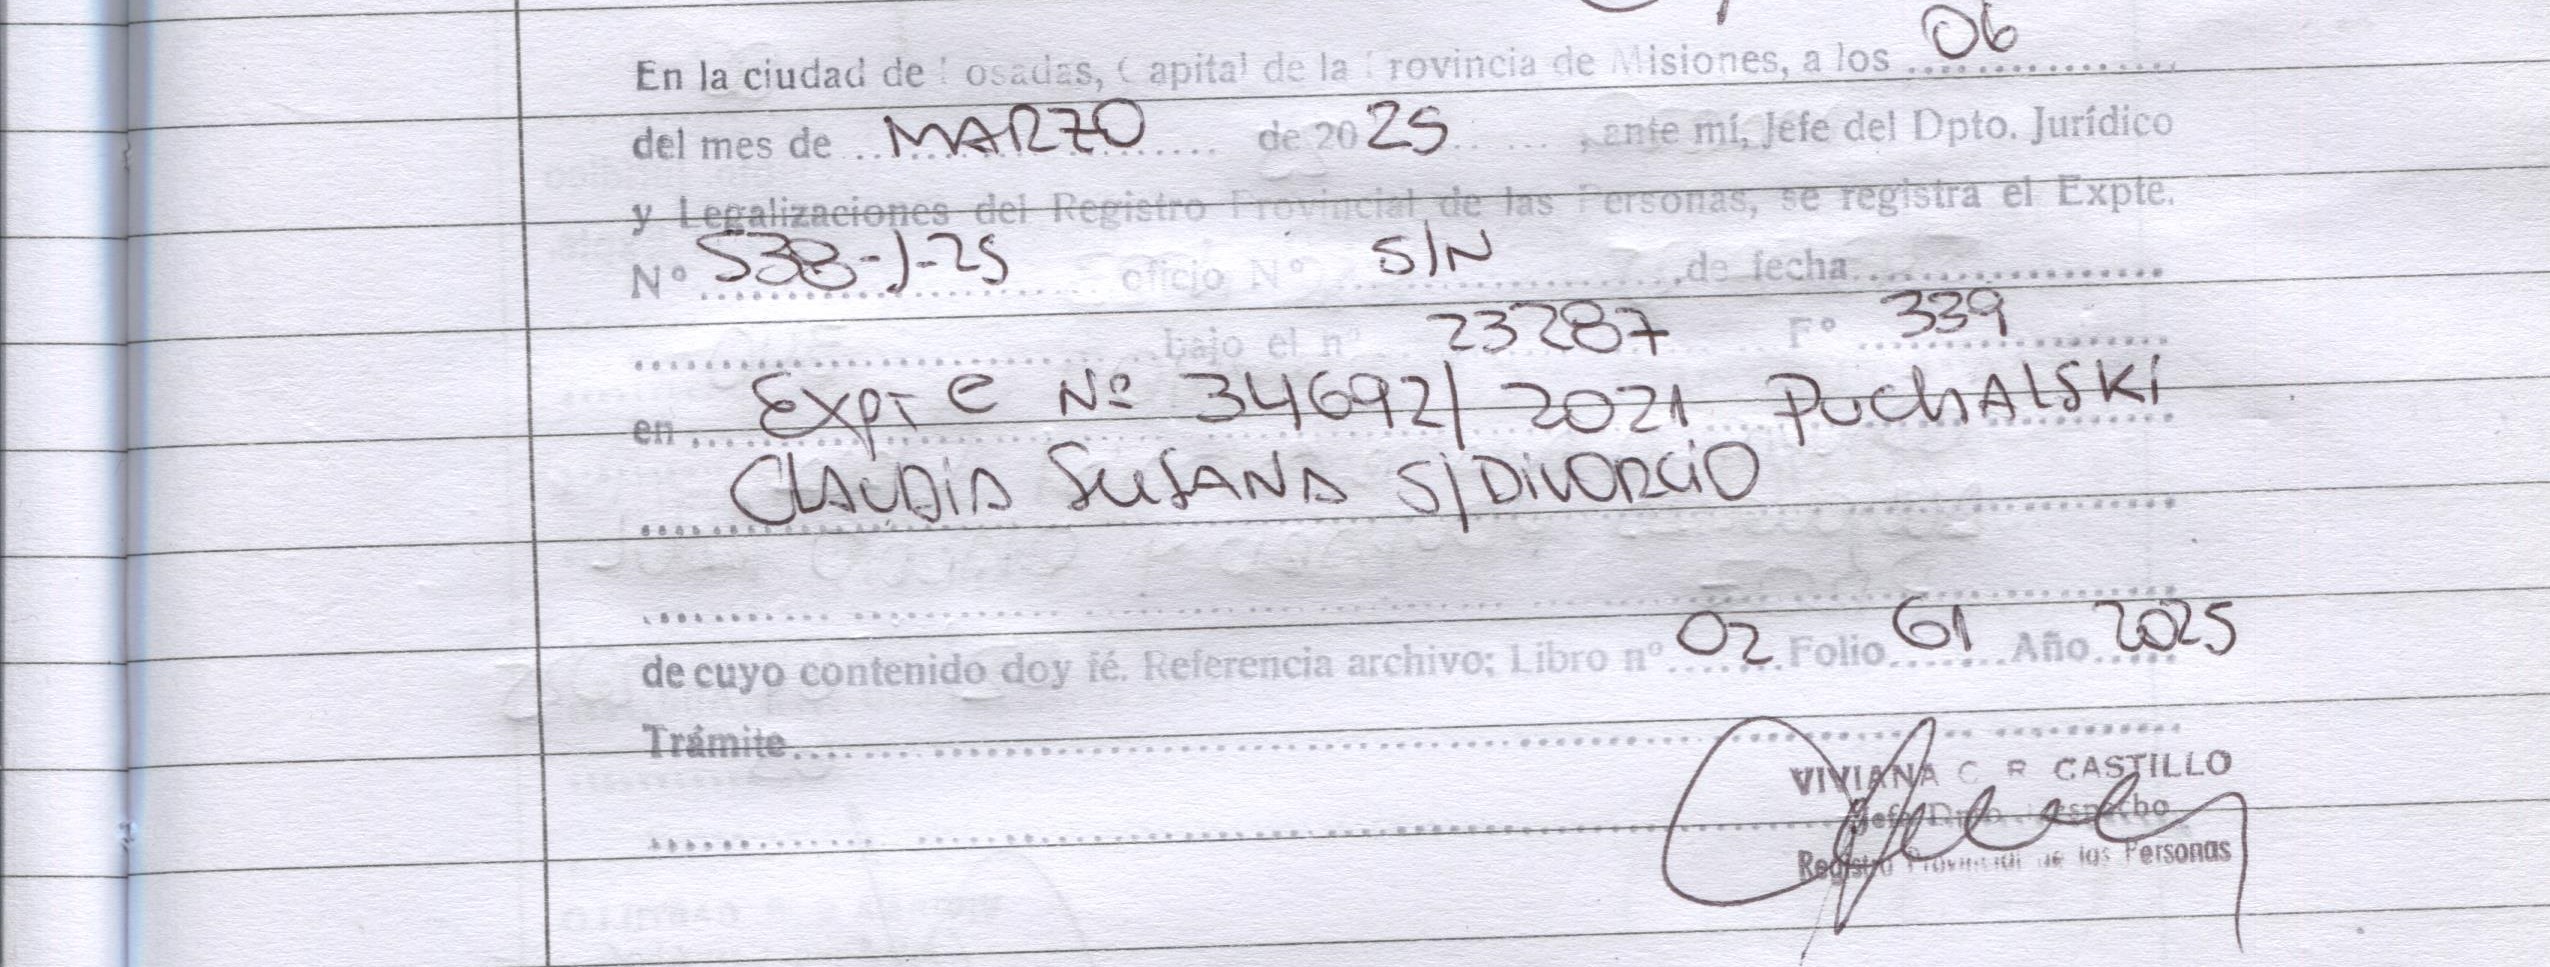 En la ciudad de Posadas, Capital de la Provincia de Misiones, a los 06
del mes de MARZO de 2025, ante mí, Jefe del Dpto. Jurídico
y Legalizaciones del Registro Provincial de las Personas, se registra el Expte.
Nº 538-J-25 oficio Nº S/N, de fecha
bajo el nº 23287 Fº 339
en Expte Nº 34692/2021 PUCHALSKI
CLAUDIA SUSANA S/DIVORCIO
de cuyo contenido doy fé. Referencia archivo; Libro nº 02 Folio 61 Año 2025
Trámite
VIVIANA C. R. CASTILLO
Jefe Dpto. Despacho
Registro Provincial de las Personas